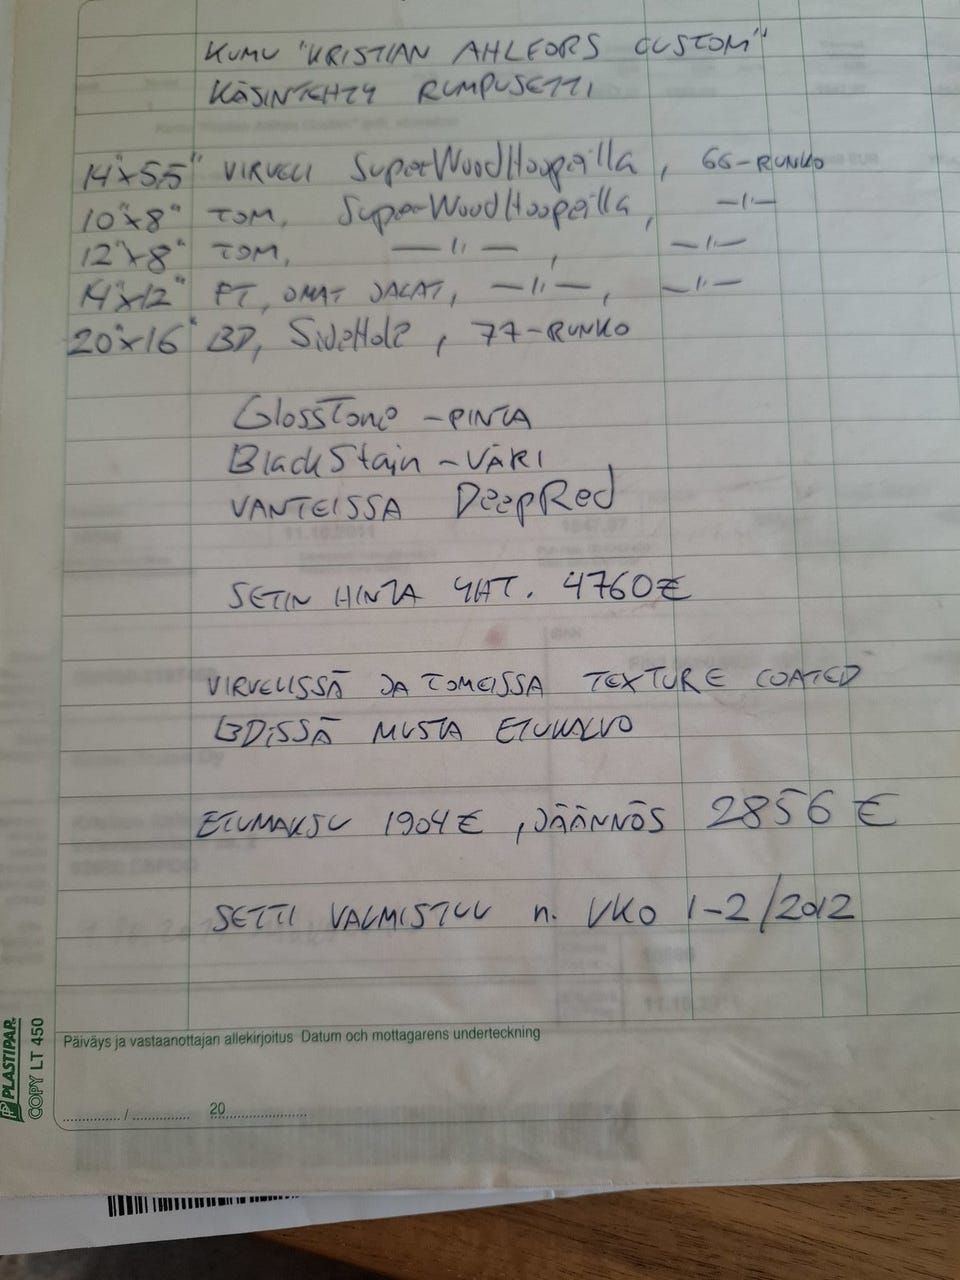 KUMU "KRISTIAN AHLFORS CUSTOM"
KÄSINTEHTY RUMPUSETTI
14"x5,5" VIRVELI SuperWoodHoopeilla, 66-RUNKO
10"x8" TOM, SuperWoodHoopeilla, —"—
12"x8" TOM, —"—, —"—
14"x12" FT, OMAT JALAT, —"—, —"—
20"x16" BD, SideHole, 77-RUNKO
GlossTone -PINTA
BlackStain -VÄRI
VANTEISSA DeepRed
SETIN HINTA YHT. 4760€
VIRVELISSÄ JA TOMEISSA TEXTURE COATED
BDiSSÄ MUSTA ETUKALVO
ETUMAKSU 1904€, JÄÄNNÖS 2856€
SETTI VALMISTUU n. VKO 1-2/2012
PLASTIPAP.
COPY LT 450
Päiväys ja vastaanottajan allekirjoitus Datum och mottagarens underteckning
............/............ 20............